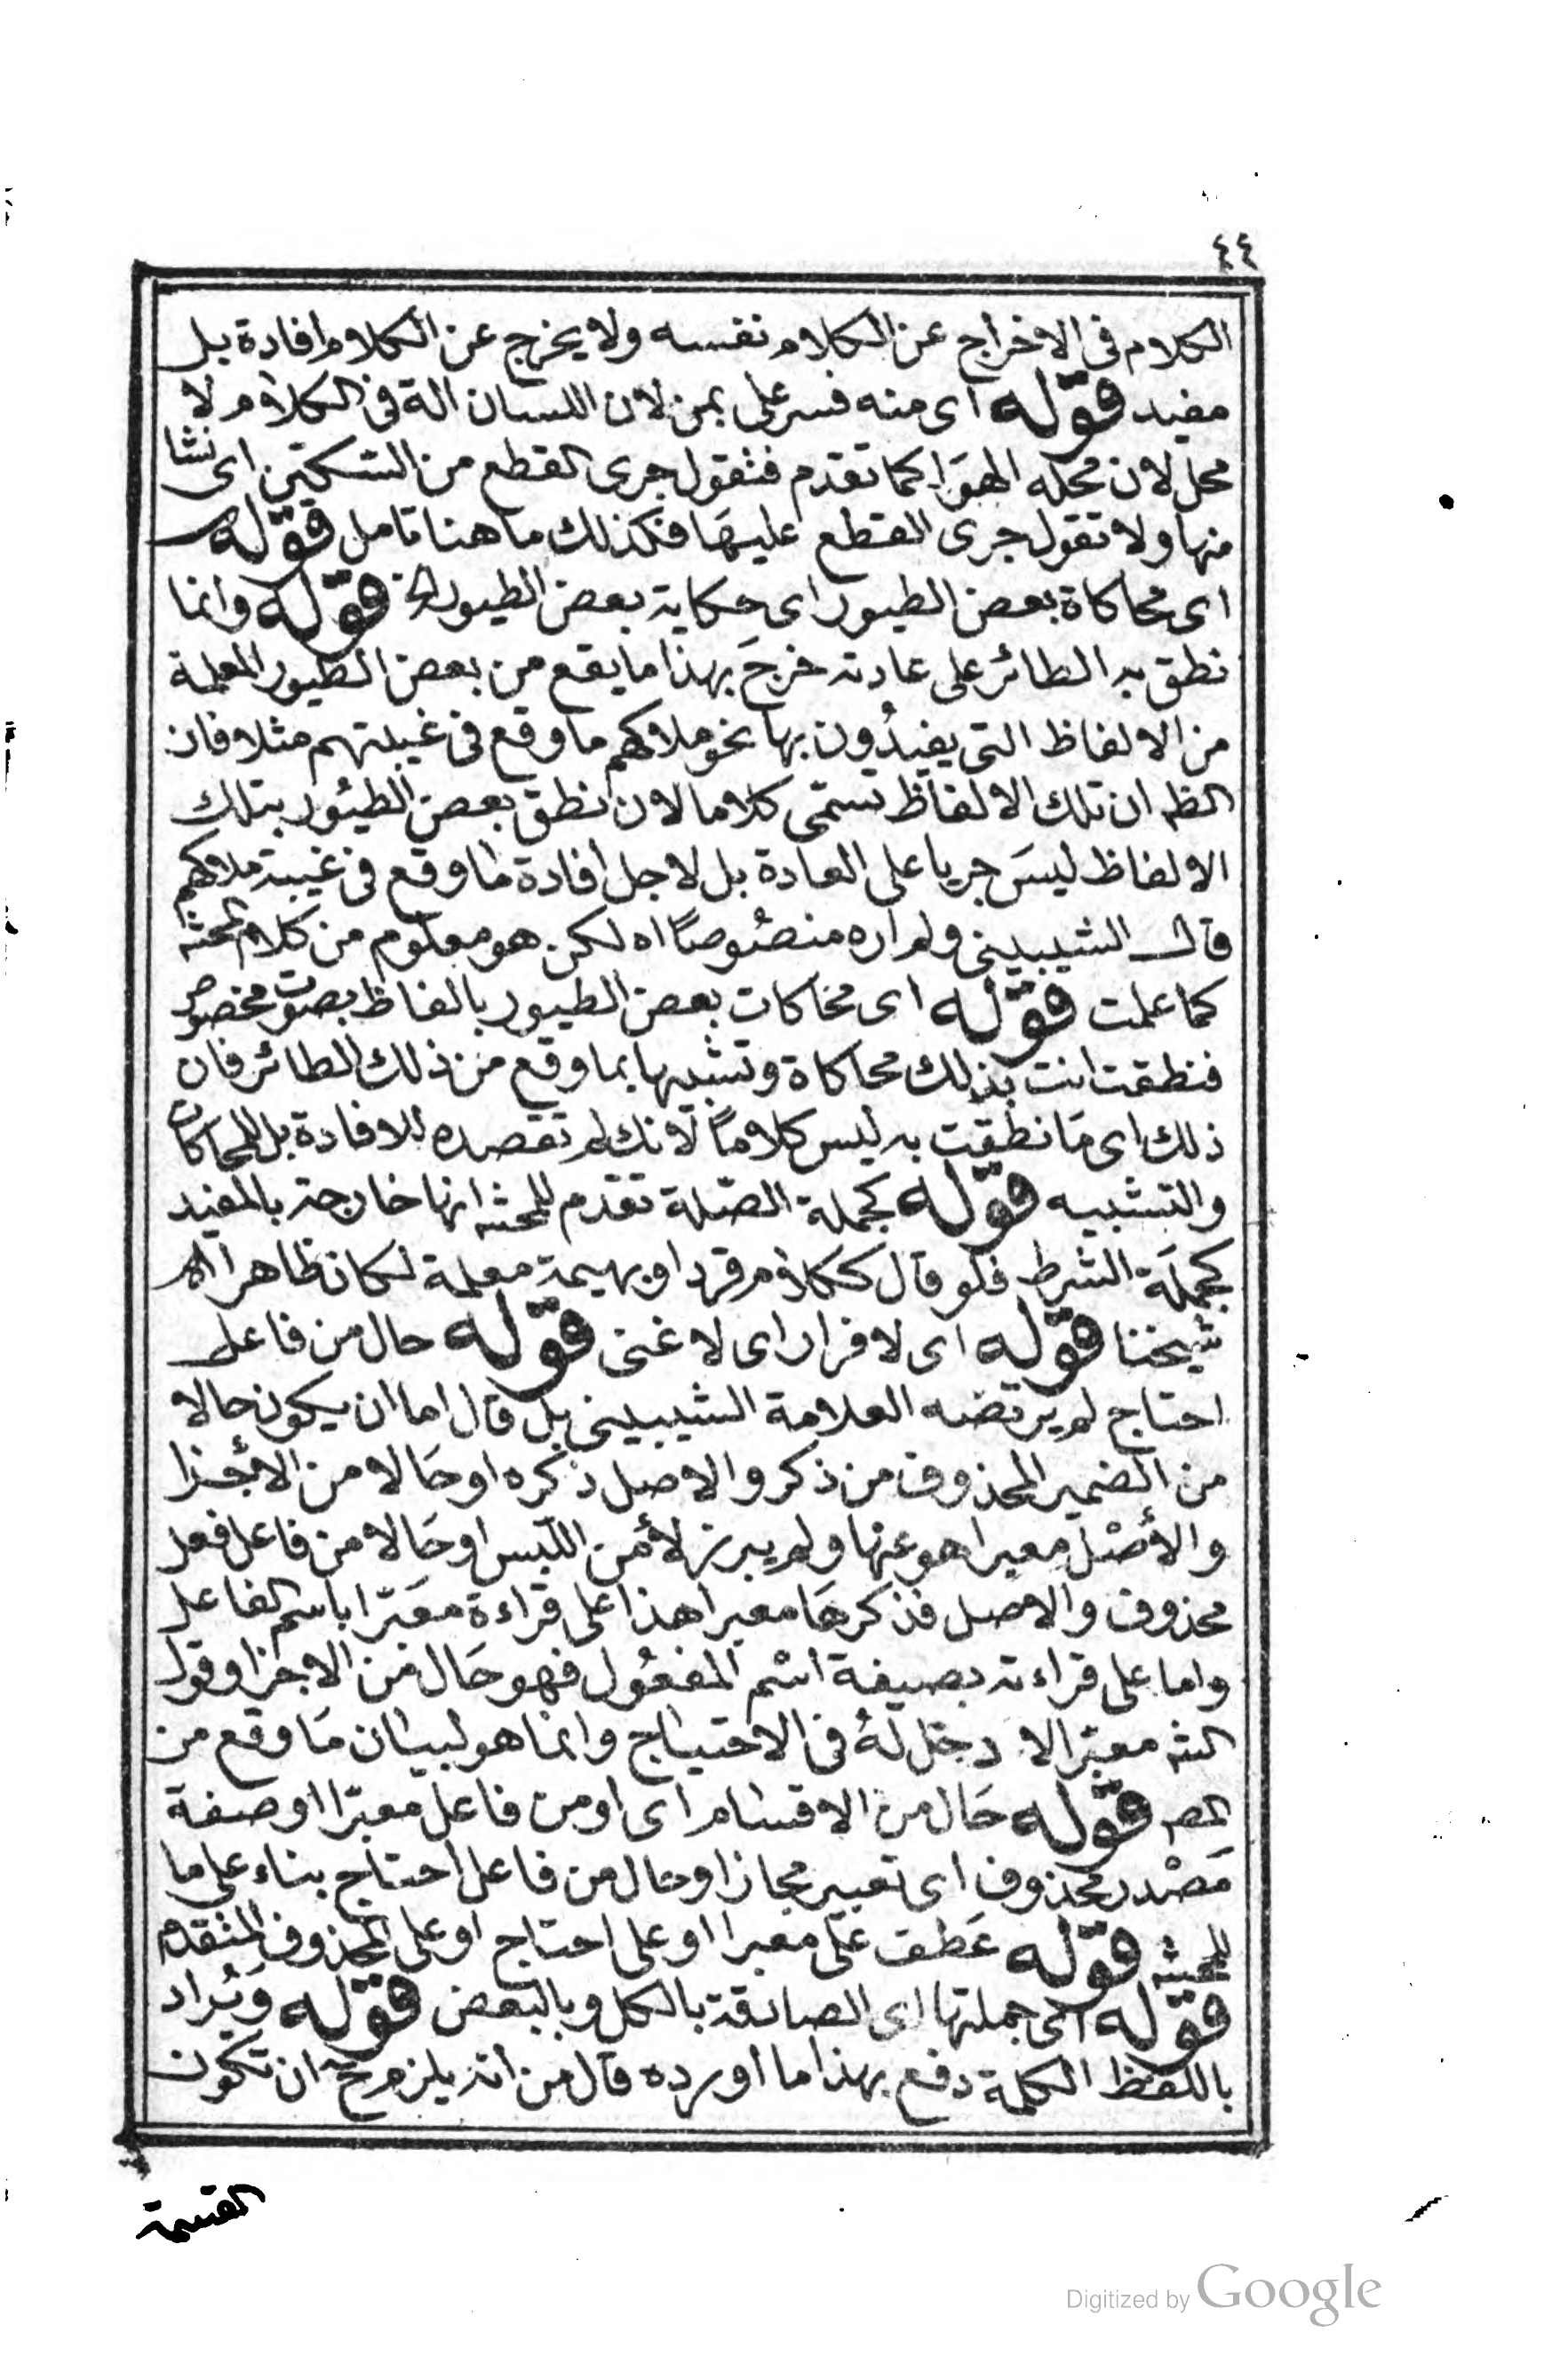 ٤٤
الكلام فى الاخراج عن الكلام نفسه ولا يخرج عن الكلام افادة بل
مفيد قوله اى منه فسر على بمن لان اللسان الة فى الكلام لا
محل لان محله الهوا كما تقدم فتقول جرى القطع من السكين اى نشا
منها ولا تقول جرى القطع عليها فكذلك ما هنا تامل قوله
اى محاكاة بعض الطيور اى حكاية بعض الطيور الخ قوله وانما
نطق به الطائر على عادته خرج بهذا ما يقع من بعض الطيور المعلمة
من الالفاظ التى يفيدون بها نحو ملاكهم ما وقع فى غيبتهم مثلا فان
الظ ان تلك الالفاظ تسمى كلاما لان نطق بعض الطيور بتلك
الالفاظ ليس جريا على العادة بل لاجل افادة ما وقع فى غيبة ملاكهم
قال الشيبينى ولم اره منصوصا اه لكن هو معلوم من كلام المحشه
كما علمت قوله اى محاكات بعض الطيور بالفاظ بصوت مخصوص
فنطقت انت بذلك محاكاة وتشبيها بما وقع من ذلك الطائر فان
ذلك اى ما نطقت به ليس كلاما لانك لم تقصده للافادة بل للمحاكات
والتشبيه قوله كجملة الصلة تقدم للمحشه انها خارجة بالمفيد
كجملة الشرط فلو قال ككلام قرد او بهيمة معلمة لكان ظاهرا اه
شيخنا قوله اى لا فرار اى لا غنى قوله حال من فاعل
احتاج لم يرتضه العلامة الشيبينى بل قال اما ان يكون حالا
من الضمير المحذوف من ذكر والاصل ذكره او حالا من الاجزا
والأصل معبرا هو عنها ولم يبرز لأمن اللبس او حالا من فاعل فعل
محذوف والاصل فذكرها معبرا هذا على قراءة معبرا باسم الفاعل
واما على قراءته بصيغة اسم المفعول فهو حال من الاجزا وقول
الشه معبرا لا دخل له فى الاحتياج وانما هو لبيان ما وقع من
المصه قوله حال من الاقسام اى او من فاعل معبرا او صفة
مصدر محذوف اى تعبير مجازا او حال من فاعل احتاج بناء على ما
للمحشه قوله عطف على معبرا او على احتاج او على المحذوف المتقدم
قوله اى جملتها اى الصادقة بالكل وبالبعض قوله ويراد
باللفظ الكلمة دفع بهذا ما أورده قال من انه يلزم ح ان تكون
القسمة
Digitized by Google